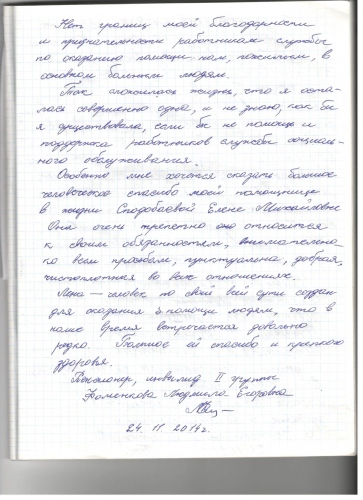 Нет границ моей благодарности
и признательности работникам службы
по оказанию помощи нам, пожилым, в
основном больным людям.
Так сложилась жизнь, что я оста-
лась совершенно одна, и не знаю, как бы
я существовала, если бы не помощь и
поддержка работников службы социаль-
ного обслуживания.
Особенно мне хочется сказать большое
человеческое спасибо моей помощнице
в жизни Сподобаевой Елене Михайловне
Она очень трепетно относится
к своим обязанностям, внимательна
ко всем просьбам, пунктуальна, добрая,
чистоплотная во всех отношениях.
Лена – человек по своей всей сути создан
для оказания помощи людям, что в
наше время встречается довольно
редко. Большое ей спасибо и крепкого
здоровья.
Пенсионер, инвалид II группы
Фоменкова Людмила Егоровна
24. 11 2014г.